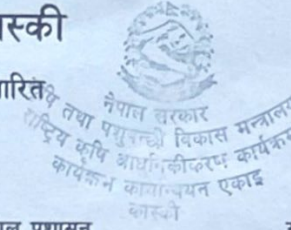 स्की
ारित
नेपाल सरकार
कृषि तथा पशुपन्छी विकास मन्त्रालय
राष्ट्रिय कृषि आधुनिकीकरण कार्यक्रम
कार्यक्रम कार्यान्वयन एकाइ
कास्की